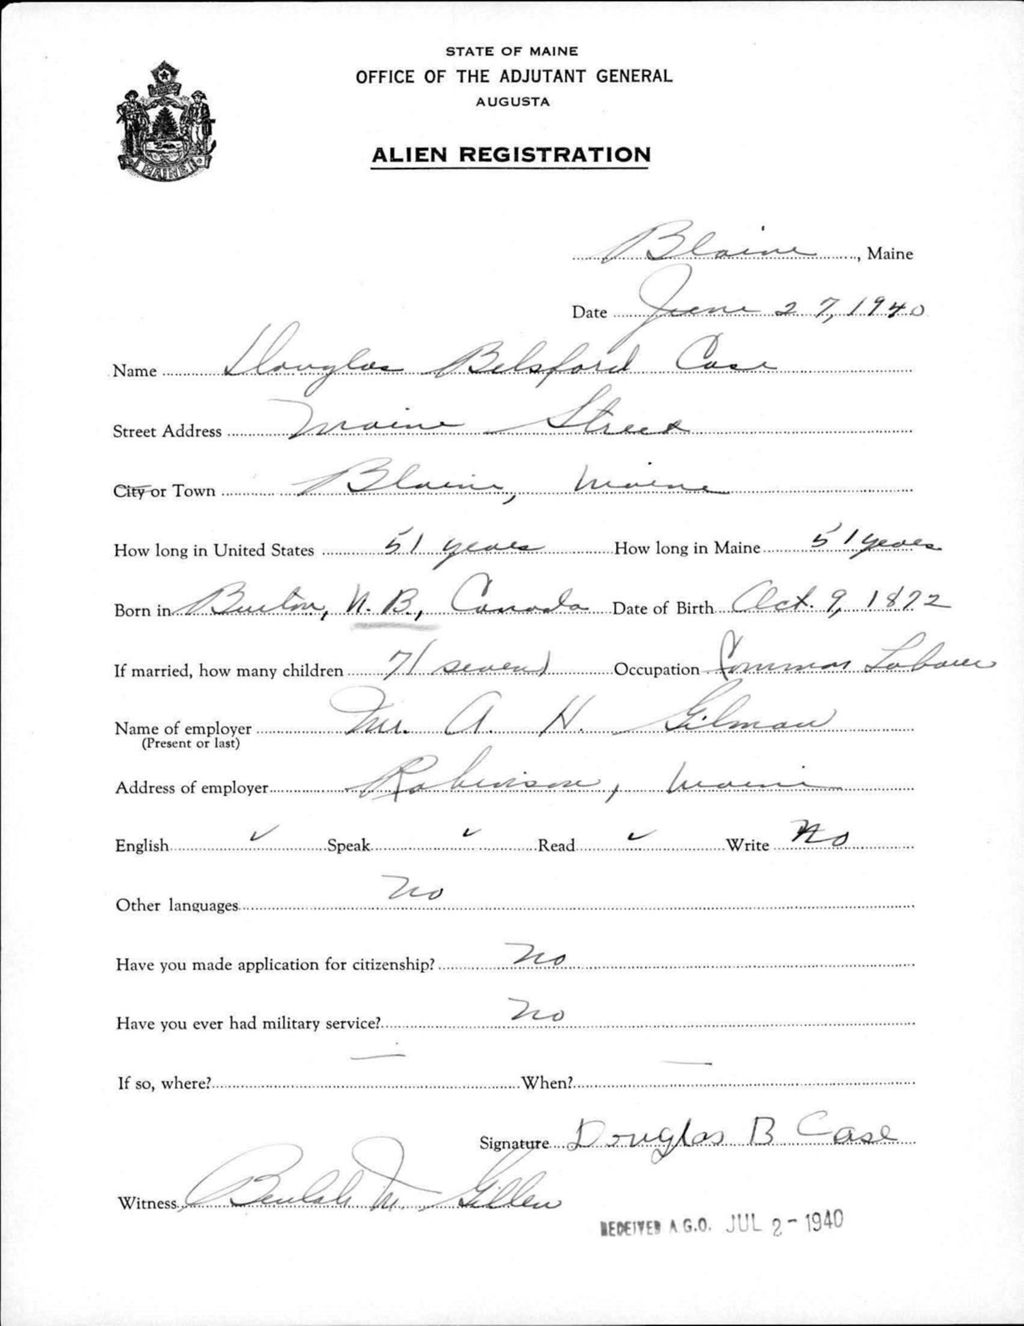 STATE OF MAINE
OFFICE OF THE ADJUTANT GENERAL
AUGUSTA
MAINE
ALIEN REGISTRATION
Blaine, Maine
Date June 27, 1940
Name Douglas Belsford Case
Street Address Maine Street
City or Town Blaine, Maine
How long in United States 51 years How long in Maine 51 years
Born in Burton, N. B., Canada Date of Birth Oct. 9, 1872
If married, how many children 7 (seven) Occupation Common Laborer
Name of employer Mr. A. H. Gilman
(Present or last)
Address of employer Robinson, Maine
English ✓ Speak ✓ Read ✓ Write No
Other languages No
Have you made application for citizenship? No
Have you ever had military service? No
If so, where? — When? —
Signature Douglas B Case
Witness Beulah M. Gillen
RECEIVED A.G.O. JUL 2 - 1940